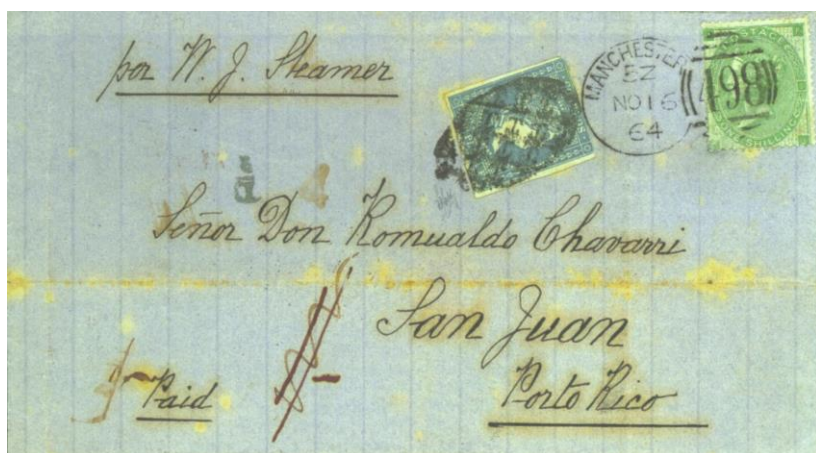 por W. J. Steamer
MANCHESTER
EZ
NO 16
64
498
Señor Don Romualdo Chavarri
San Juan
Porto Rico
Paid